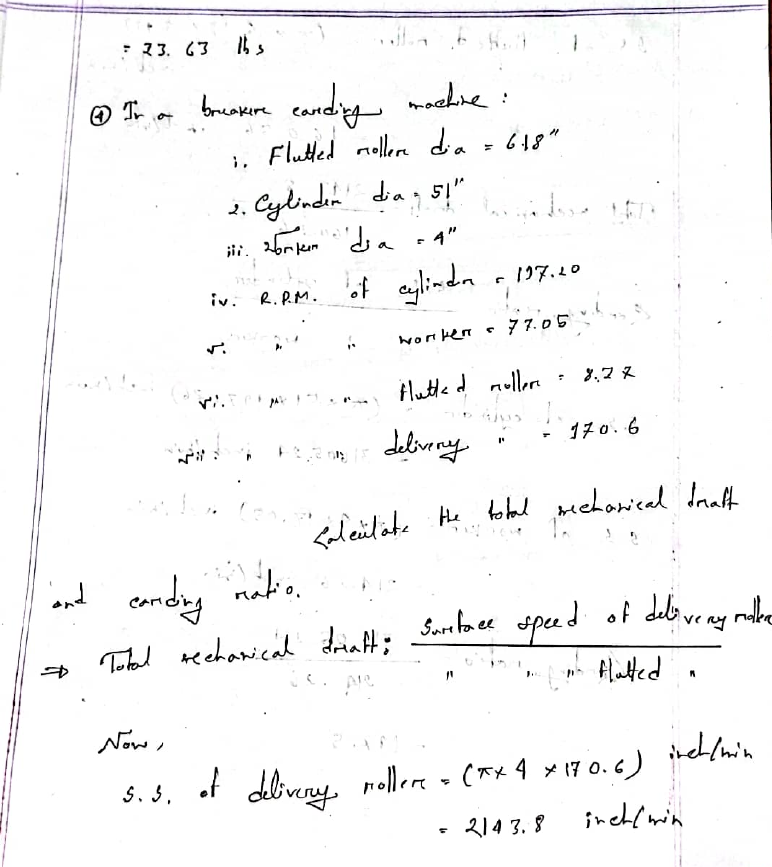 = 23.63 lbs
④ In a breakere carding machine :
i. Flutted roller dia = 6.18"
2. Cylinder dia = 51"
iii. Worker dia = 4"
iv. R.P.M. of cylinder = 197.20
v. " " worker = 77.05
vi. " " flutted roller = 8.27
vii. " " delivery " = 170.6
Calculate the total mechanical draft
and carding ratio.
⇒ Total mechanical draft : Surface speed of delivery roller
" " " flutted "
Now,
S.S. of delivery roller = (π × 4 × 170.6) inch/min
= 2143.8 inch/min